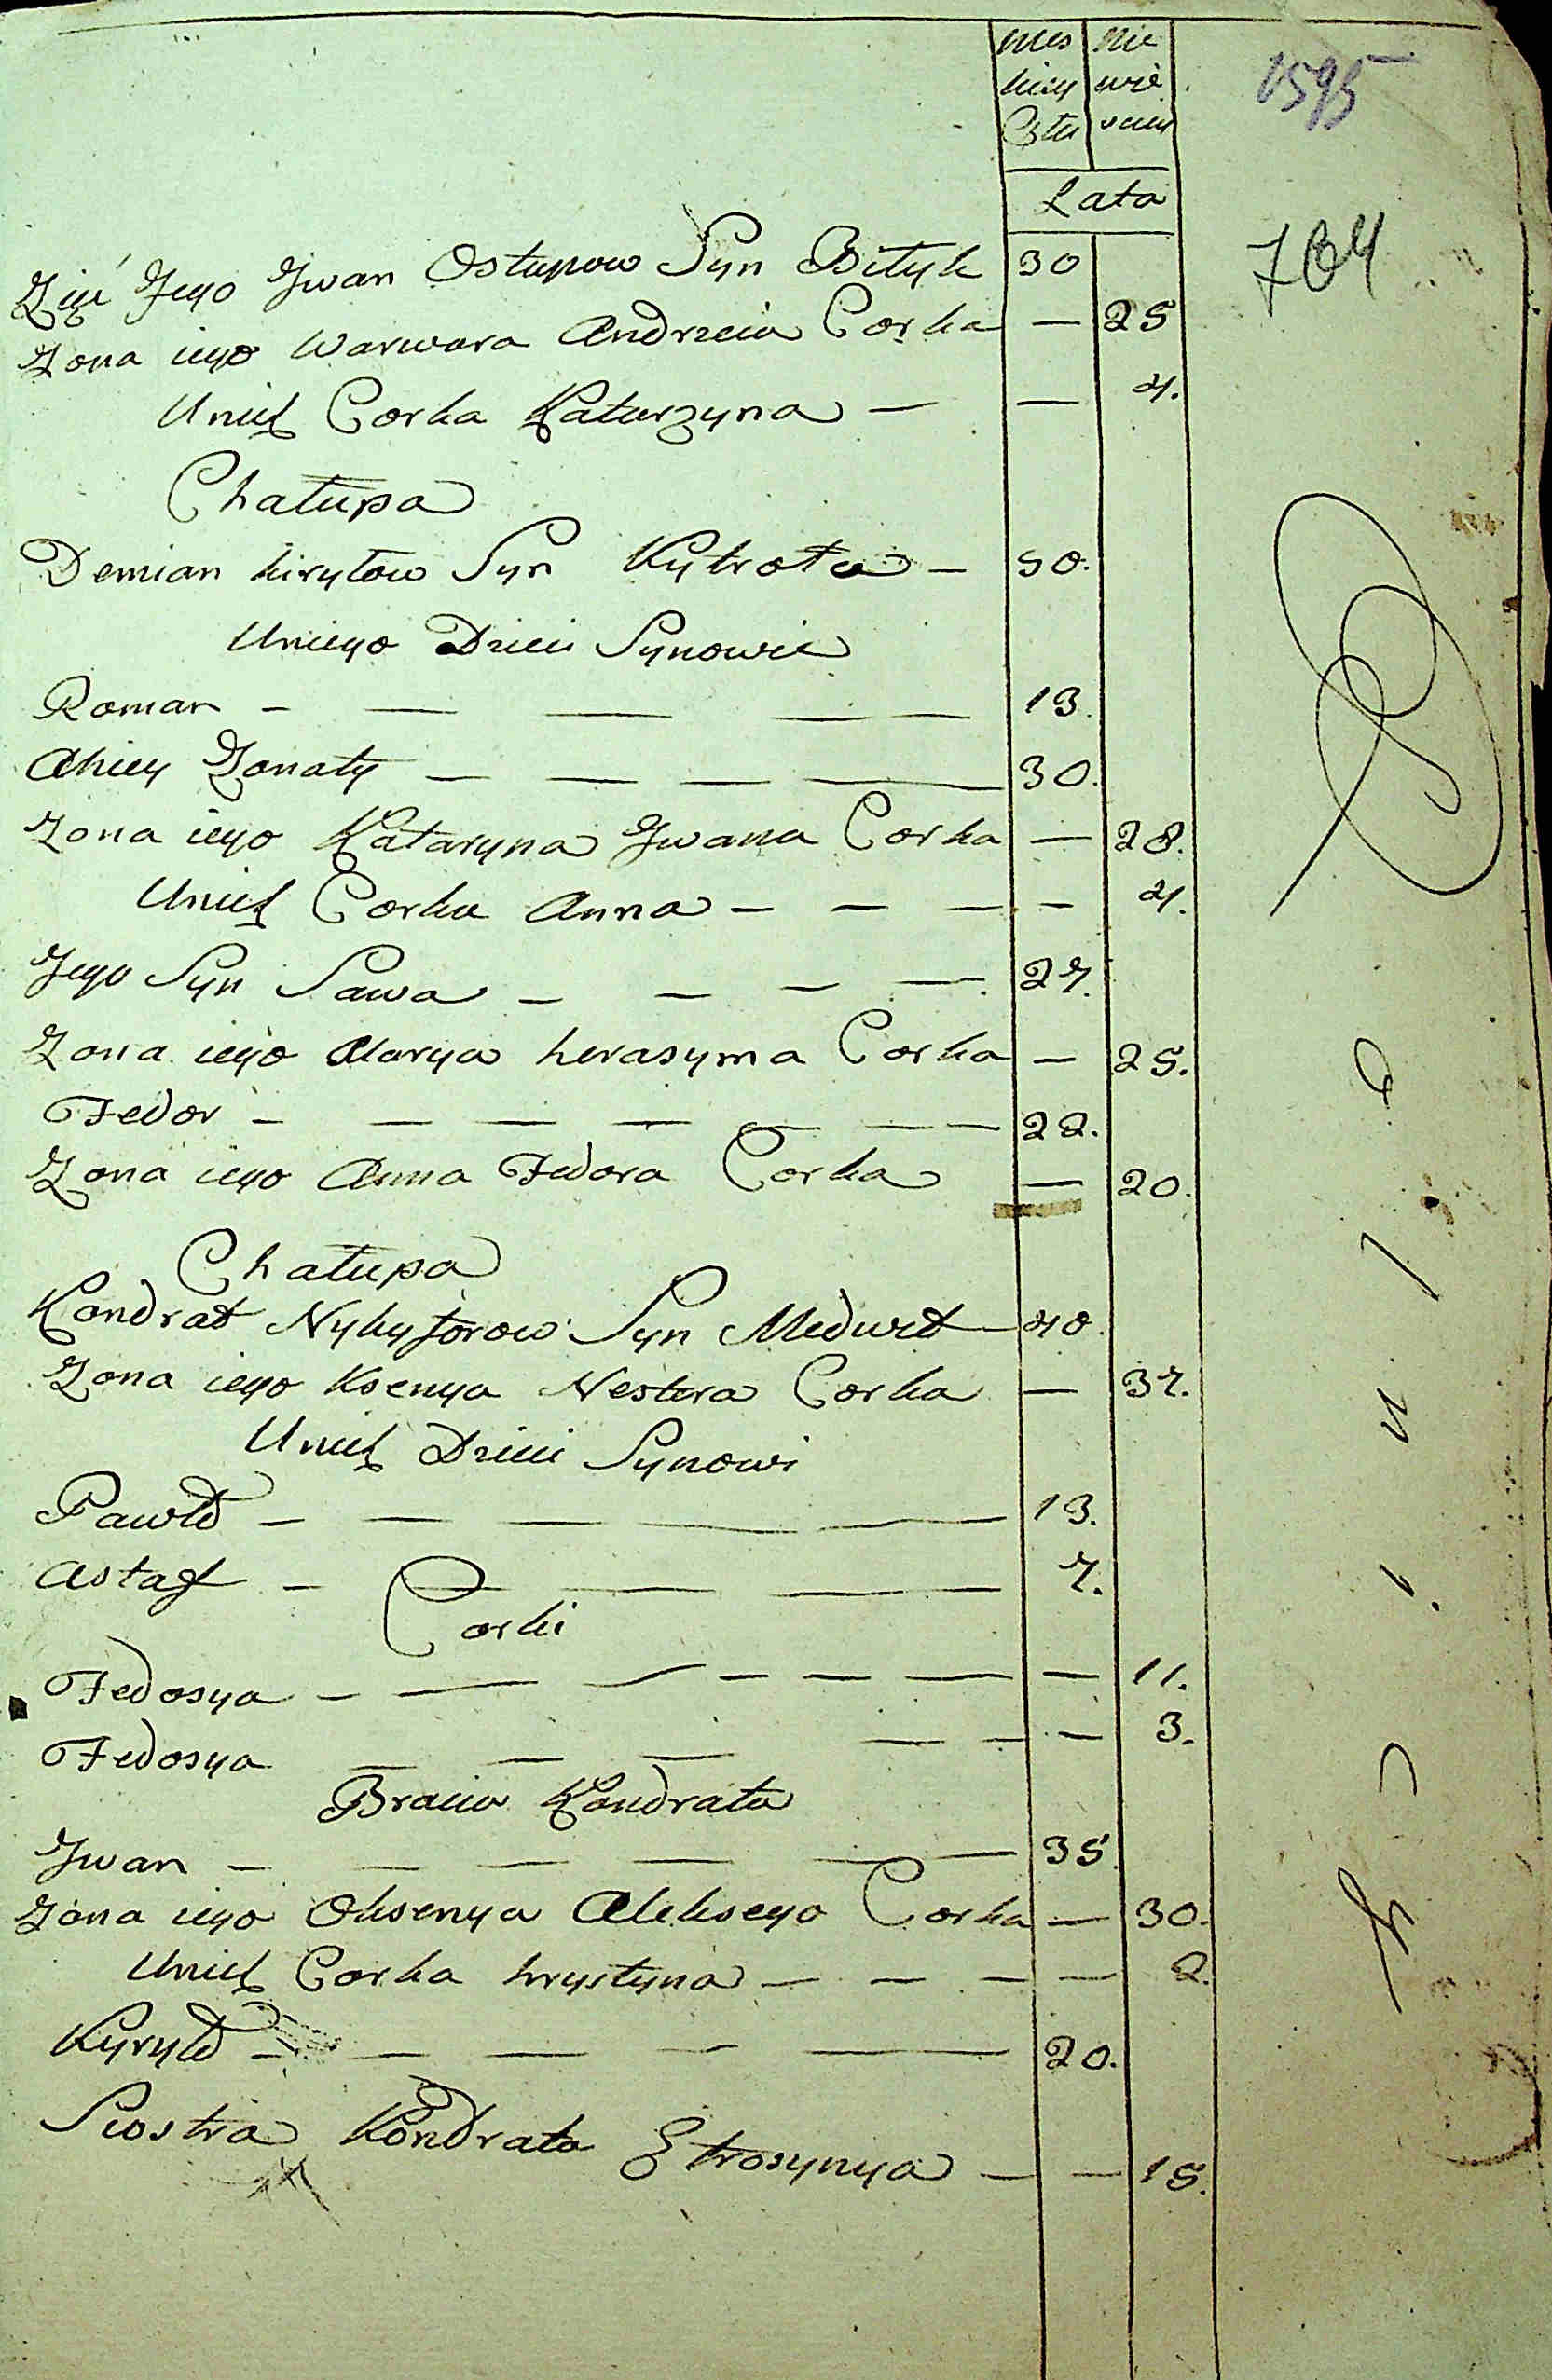 mes nie
kiey wie
Płci sciey
1595
Lata
704
Zięć Jego Jwan Ostapow Syn Bityk 30
Zona iego Warwara Andrzeia Corka — 25
Unich Corka Katerzyna — — 4.
Chałupa
Demian kiryłow Syn — 50.
Uniego Dzieci Synowie
Roman — — — — — 13.
Zonaty — — — — 30.
Zona iego Kataryna Jwana Corka — 28.
Unich Corka Anna — — — — 4.
Jego Syn Sawa — — — — 27.
Zona iego Marya herasyma Corka — 25.
Fedor — — — — — — — 22.
Zona iego Anna Fedora Corka — 20.
Chałupa
Kondrat Nykyforow Syn Medwed — 40.
Zona iego Ksenya Nestera Corka — 37.
Unich Dzieci Synowi
Pawło — — — — — 13.
Astaf — — — — 7.
Corki
Fedosya — — — — — — — 11.
Fedosya — — — — — — 3.
Bracia Kondrata
Jwan — — — — — — 35.
Zona iego Oksenya Alekseya Corka — 30.
Unich Corka hrystyna — — — — 2.
Kyryło — — — — — 20.
Siostra Kondrata Efrosynya — — 15.